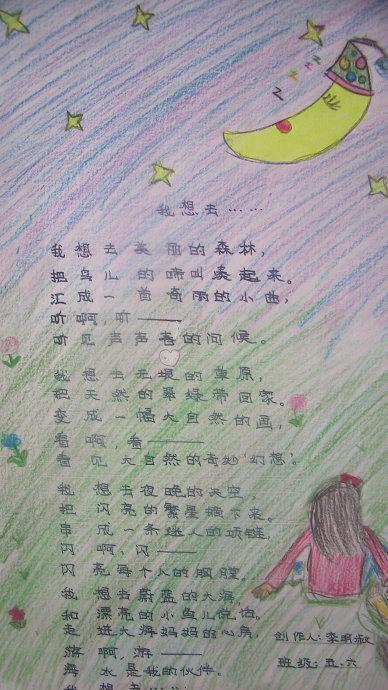 我想去……
我想去美丽的森林，
把鸟儿的啼叫凑起来。
汇成一首奇丽的小曲，
听啊，听——
听见声声春的问候。
我想去无垠的草原，
把天然的翠绿带回家。
变成一幅大自然的画，
看啊，看——
看见大自然的奇妙'幻想'。
我想去夜晚的天空，
把闪亮的繁星摘下来。
串成一条迷人的项链，
闪啊，闪——
闪亮每个人的胸膛。
我想去蔚蓝的大海，
和漂亮的小鱼儿说话。
走进大海妈妈的心房，
游啊，游——
海水是我的伙伴。
我想去……
创作人：李明淑
班级：五.六